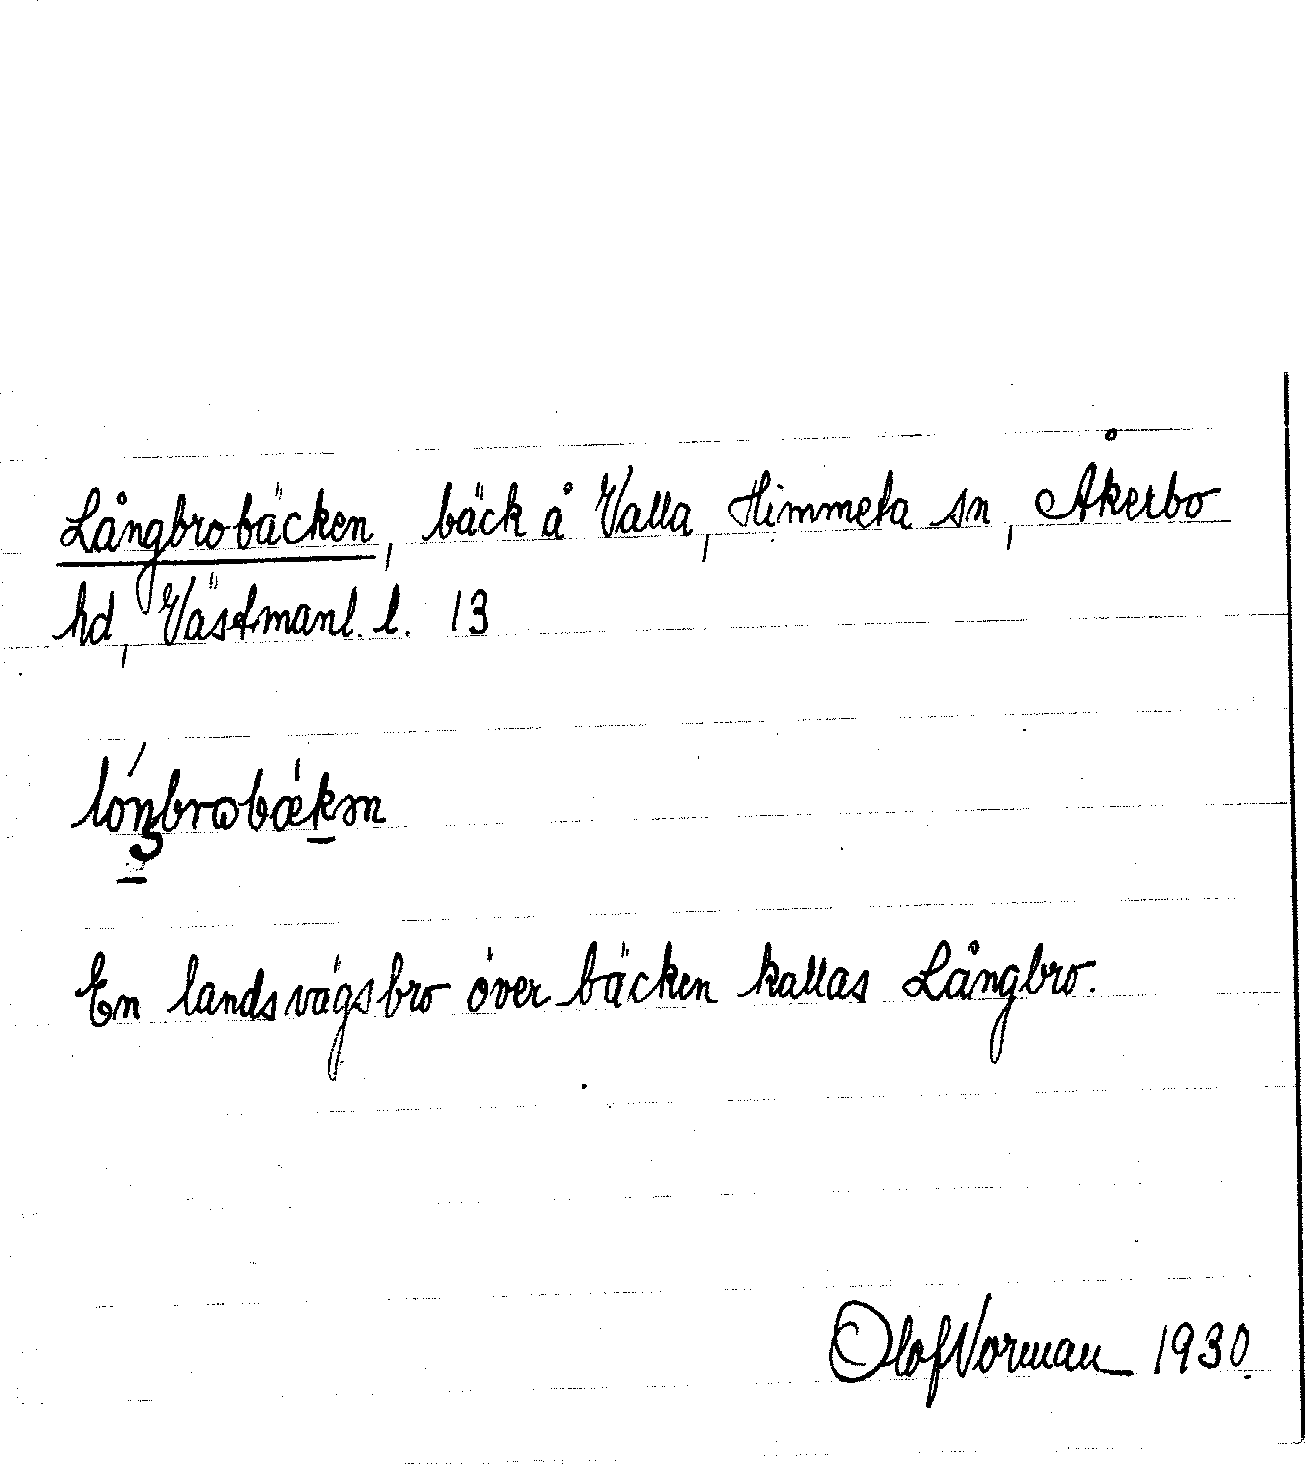 Långbrobäcken, bäck å Valla, Himmeta sn, Åkerbo
hd, Västmanl. l. 13
lóŋbrωbæ̀kən
En landsvägsbro över bäcken kallas Långbro.
Olof Norman 1930.